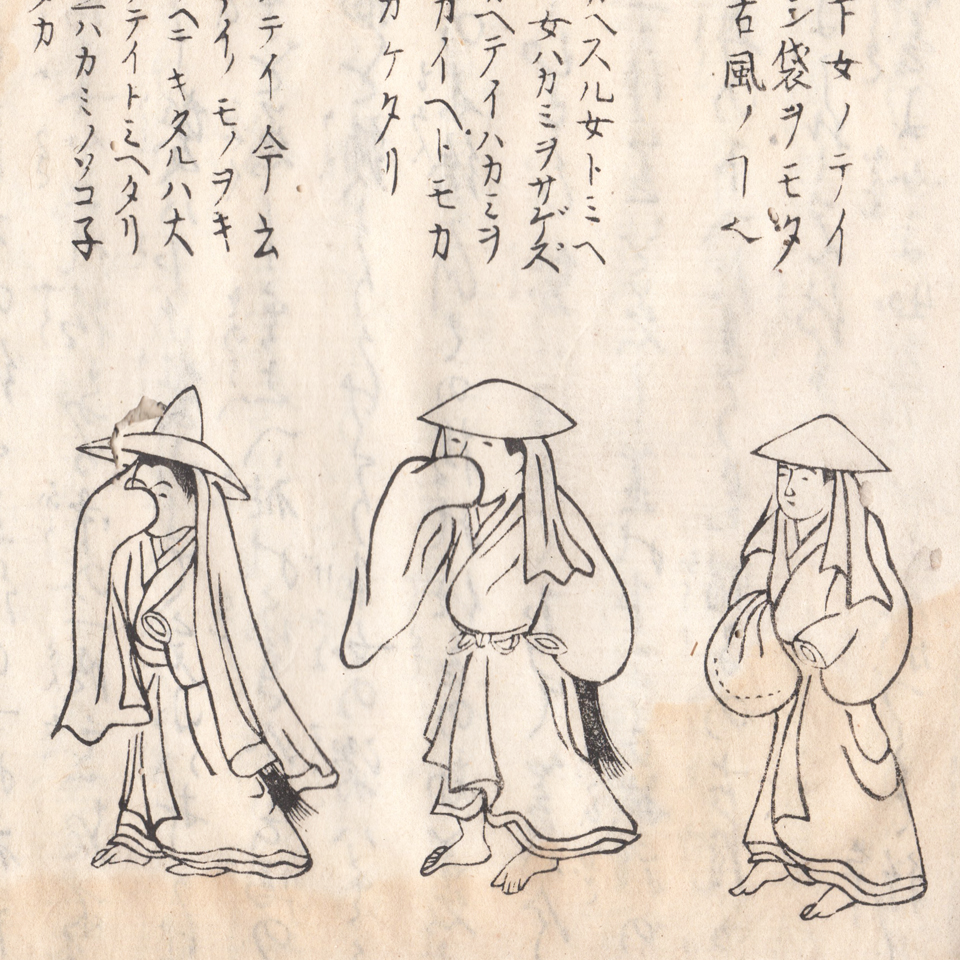 下女ノテイ
シ袋ヲモタ
古風ノヿヘ
カヘスル女トミヘ
女ハカミヲサゲズ
ヘテイハカミヲ
カイヘトモカ
カケタリ
テイ 今云
イリモノヲキ
ヘニキタルハ大
テイトミヘタリ
ニハカミノソコ子
タカ